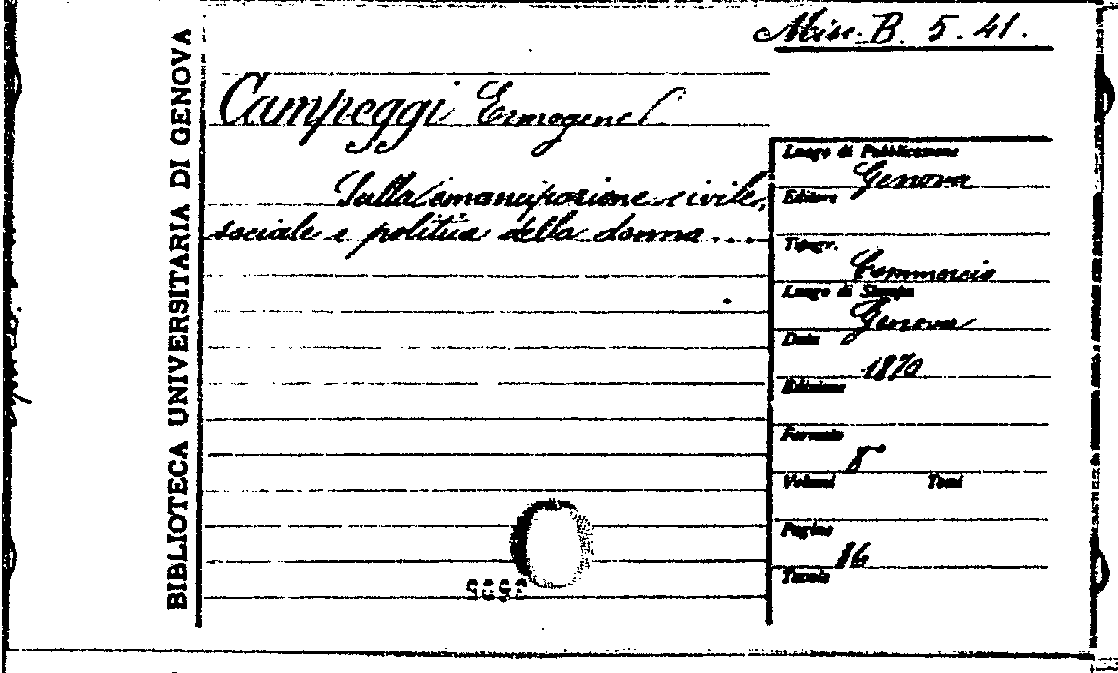 Misc. B. 5. 41.
BIBLIOTECA UNIVERSITARIA DI GENOVA
Campeggi Ermogene
Sulla emancipazione civile,
sociale e politica della donna ...
Luogo di Pubblicazione
Genova
Editore
Tipogr.
Commercio
Luogo di Stampa
Genova
Data
1870
Edizione
Formato
8°
Volumi Tomi
Pagine
16
Tavole